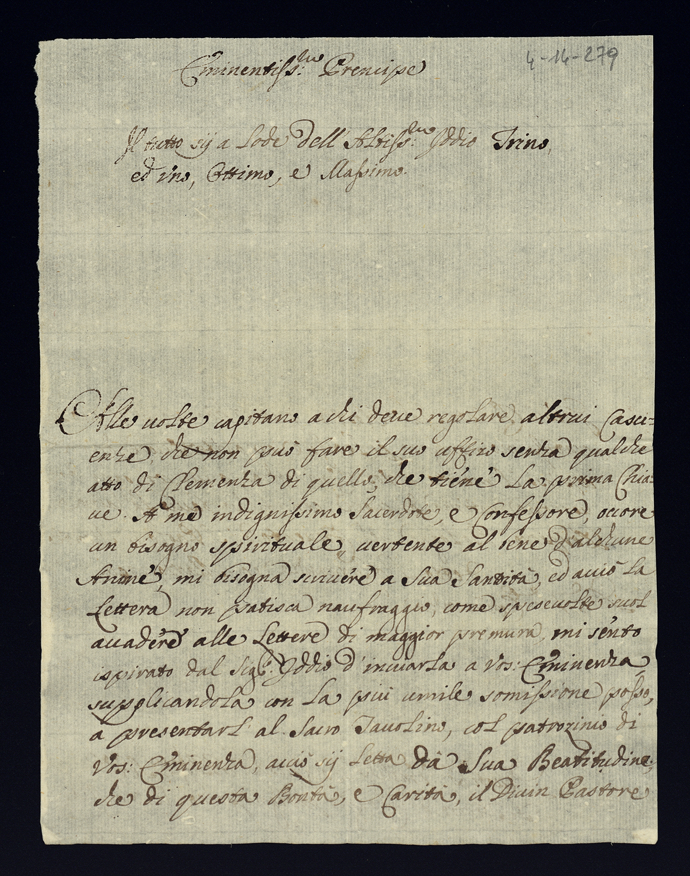 4-14-279
Eminentiss:mo Prencipe
Il tutto sij a Lode dell'Altiss:mo Yddio Trino,
ed uno, Ottimo, e Massimo.
Alle volte capitano a chi deve regolare altrui Casci-
enze che non può fare il suo uffizio senza qualche
atto di Clemenza di quello, che tiene La prima Chia-
ve. A me indignissimo Sacerdote, e Confessore, ocore
un bisogno spirituale, vertente al bene d'alchune
Anime, mi bisogna scrivere a Sua Santità, ed acciò La
Lettera non patisca naufraggio, come spesevolte suol
accadere alle Lettere di maggior premura, mi sento
ispirato dal Sig:r Yddio d'inviarla a Vos: Eminenza
supplicandola con La più umile somissione posso,
a presentarl al Sacro Tavolino, col patrozinio di
Vos: Eminenza, acciò sij Letta da Sua Beatitudine,
che di questa Bontà, e Carità, il Divin Pastore